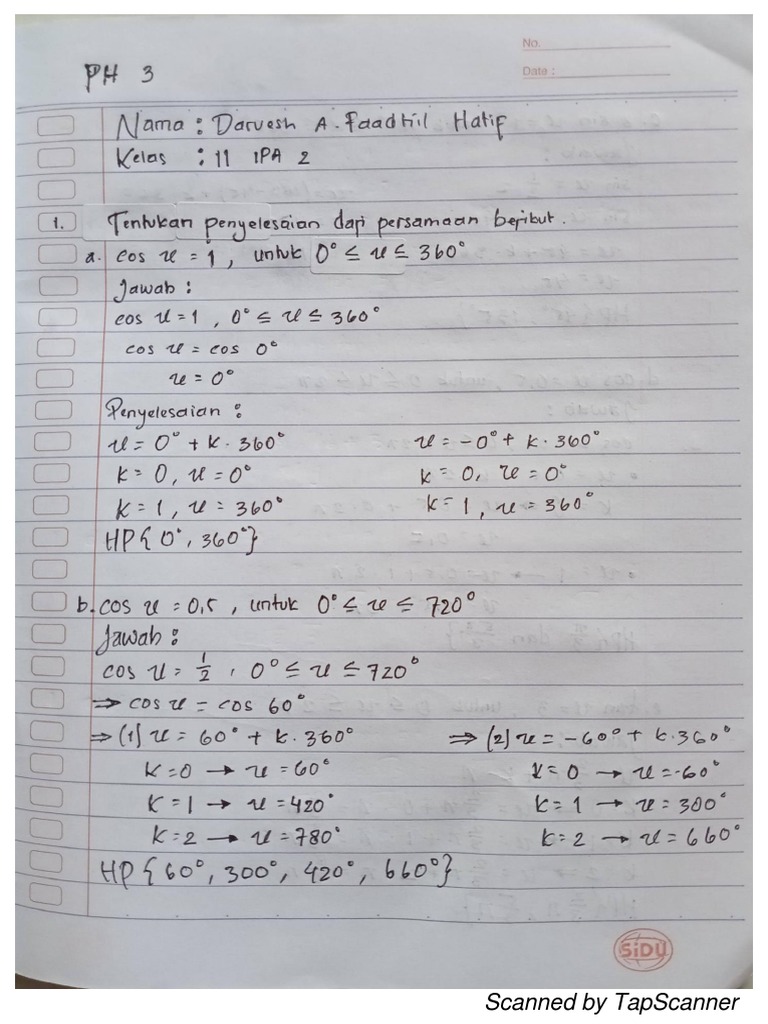 No.
Date :
PH 3
Nama : Darvesh A. Faadhil Hatif
Kelas : 11 IPA 2
1. Tentukan penyelesaian dari persamaan berikut.
a. cos x = 1, untuk 0° ≤ x ≤ 360°
Jawab :
cos x = 1, 0° ≤ x ≤ 360°
cos x = cos 0°
x = 0°
Penyelesaian :
x = 0° + k · 360° x = -0° + k · 360°
k = 0, x = 0° k = 0, x = 0°
k = 1, x = 360° k = 1, x = 360°
HP{0°, 360°}
b. cos x = 0,5, untuk 0° ≤ x ≤ 720°
Jawab :
cos x = 1/2, 0° ≤ x ≤ 720°
⇒ cos x = cos 60°
⇒ (1) x = 60° + k · 360° ⇒ (2) x = -60° + k · 360°
k = 0 → x = 60° k = 0 → x = -60°
k = 1 → x = 420° k = 1 → x = 300°
k = 2 → x = 780° k = 2 → x = 660°
HP{60°, 300°, 420°, 660°}
SiDU
Scanned by TapScanner